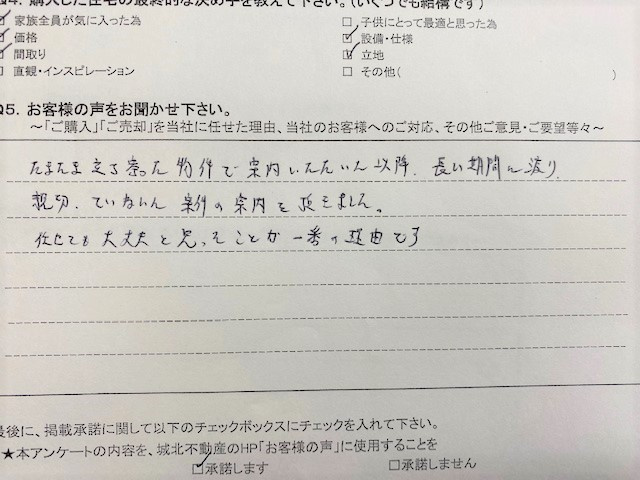 Q4. 購入した住宅の最終的な決め手を教えて下さい。(いくつでも結構です)
☑ 家族全員が気に入った為 □ 子供にとって最適と思った為
☑ 価格 ☑ 設備・仕様
☑ 間取り ☑ 立地
□ 直観・インスピレーション □ その他( )
Q5. お客様の声をお聞かせ下さい。
～「ご購入」「ご売却」を当社に任せた理由、当社のお客様へのご対応、その他ご意見・ご要望等々～
たまたま立ち寄った物件で案内いただいた以降、長い期間に渡り、
親切、ていねいに案件の案内を頂きました。
任せても大丈夫と思ったことが一番の理由です
最後に、掲載承諾に関して以下のチェックボックスにチェックを入れて下さい。
★本アンケートの内容を、城北不動産のHP「お客様の声」に使用することを
☑承諾します □承諾しません